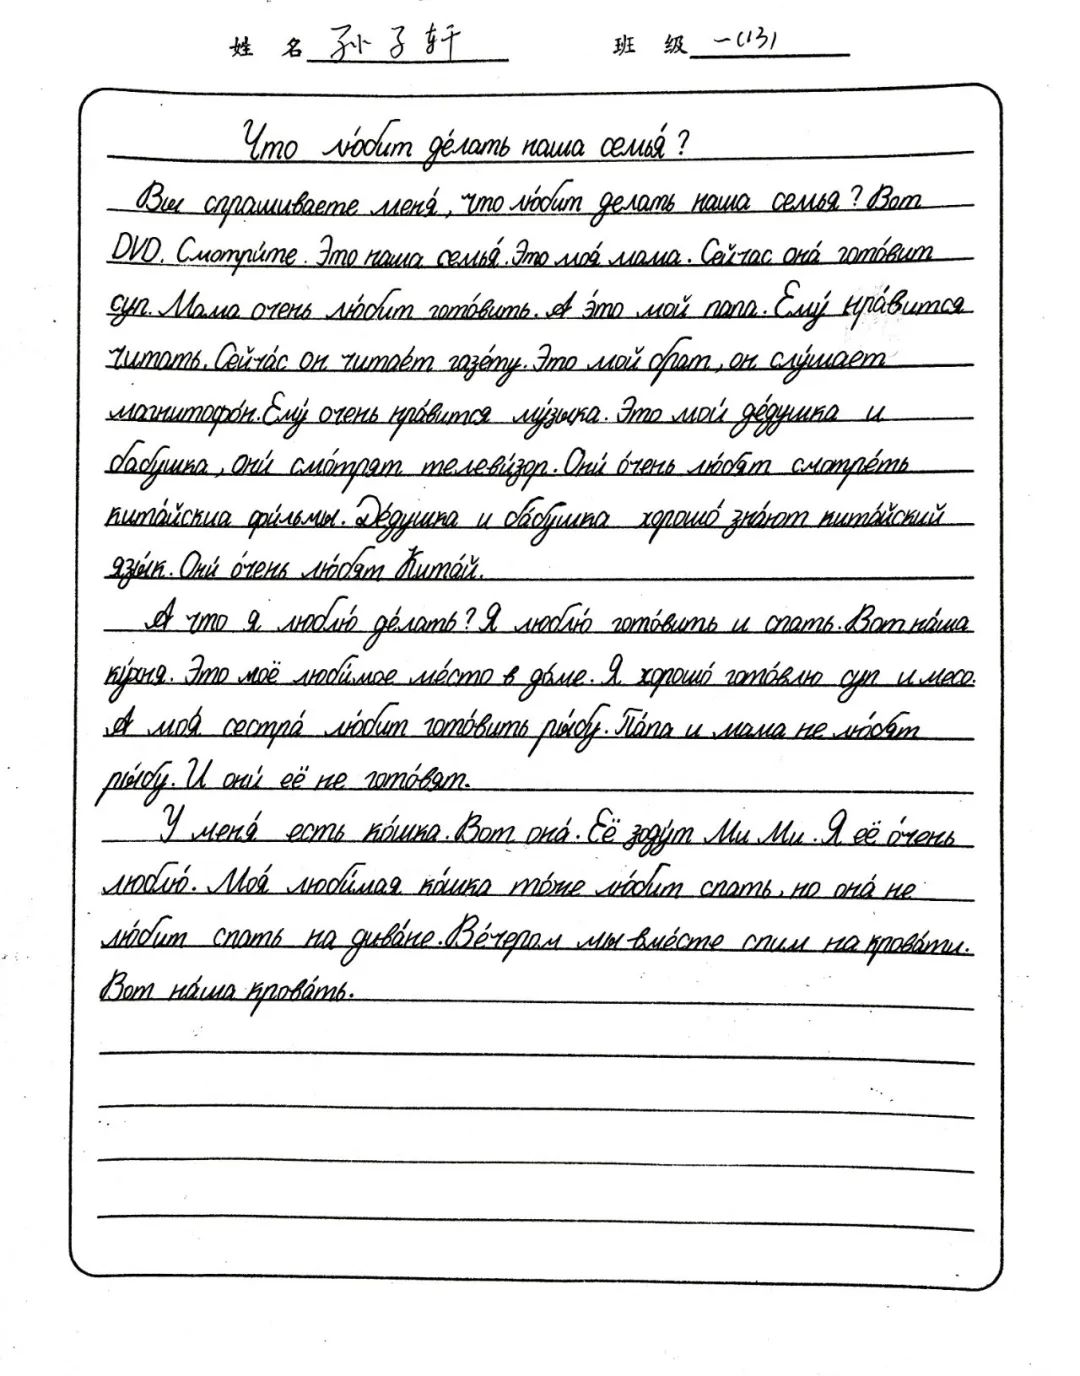 姓 名 孙子轩 班 级 一(13)
Что лю́бит де́лать наша семья́?
Вы спрашиваете меня́, что лю́бит делать наша семья? Вот
DVD. Смотри́те. Это наша семья́. Это моя́ мама. Сейчас она́ гото́вит
суп. Мама очень лю́бит гото́вить. А э́то мой папа. Ему́ нра́вится
читать. Сейча́с он чита́ет газе́ту. Это мой брат, он слу́шает
магнитофо́н. Ему́ очень нра́вится му́зыка. Это мои́ де́душка и
бабушка, они́ смо́трят телеви́зор. Они́ о́чень лю́бят смотре́ть
кита́йскиа фи́льмы. Де́душка и ба́бушка хорошо́ зна́ют кита́йский
язы́к. Они́ о́чень лю́бят Кита́й.
А что я люблю́ де́лать? Я люблю́ гото́вить и спать. Вот на́ша
ку́хня. Это моё люби́мое ме́сто в до́ме. Я хорошо́ гото́влю суп и месо.
А моя́ сестра́ лю́бит гото́вить ры́бу. Па́па и мама не лю́бят
ры́бу. И они́ её не гото́вят.
У меня́ есть ко́шка. Вот она́. Её зоду́т Ми Ми. Я её о́чень
люблю́. Моя́ люби́мая ко́шка то́же лю́бит спать, но она́ не
лю́бит спать на дива́не. Ве́чером мы вме́сте спим на крова́ти.
Вот на́ша крова́ть.